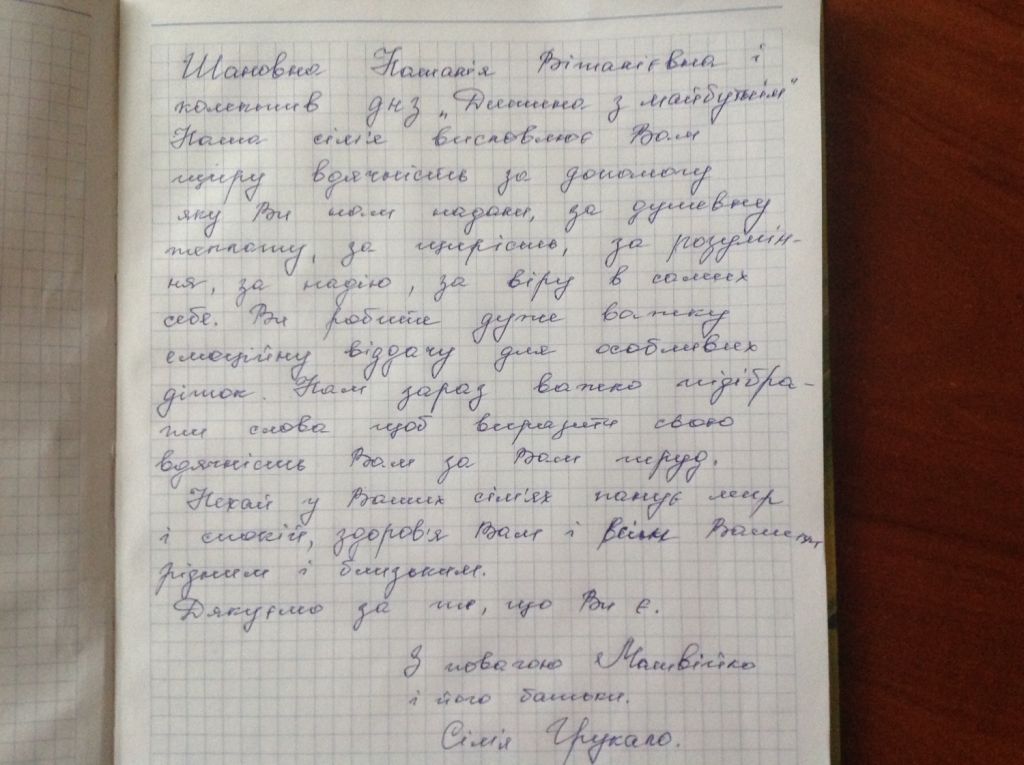 Шановна Наталія Віталієвна і
колектив днз „Дитина з майбутнім"
Наша сім'я висловлює Вам
щиру вдячність за допомогу
яку Ви нам надали, за душевну
теплоту, за щирість, за розумін-
ня, за надію, за віру в самих
себе. Ви робите дуже важку
емоційну віддачу для особливих
діток. Нам зараз важко підібра-
ти слова щоб виразити свою
вдячність Вам за Вам труд.
Нехай у Ваших сім'ях панує мир
і спокій, здоров'я Вам і всім Вашим
різним і близьким.
Дякуємо за те, що Ви є.
З повагою Матвійко
і його батьки.
Сім'я Грукало.